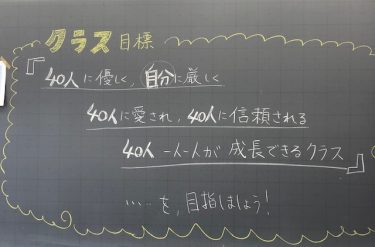 クラス目標
『40人に優しく、自分に厳しく
40人に愛され、40人に信頼される
40人 一人一人が 成長できるクラス』
……を、目指しましょう!